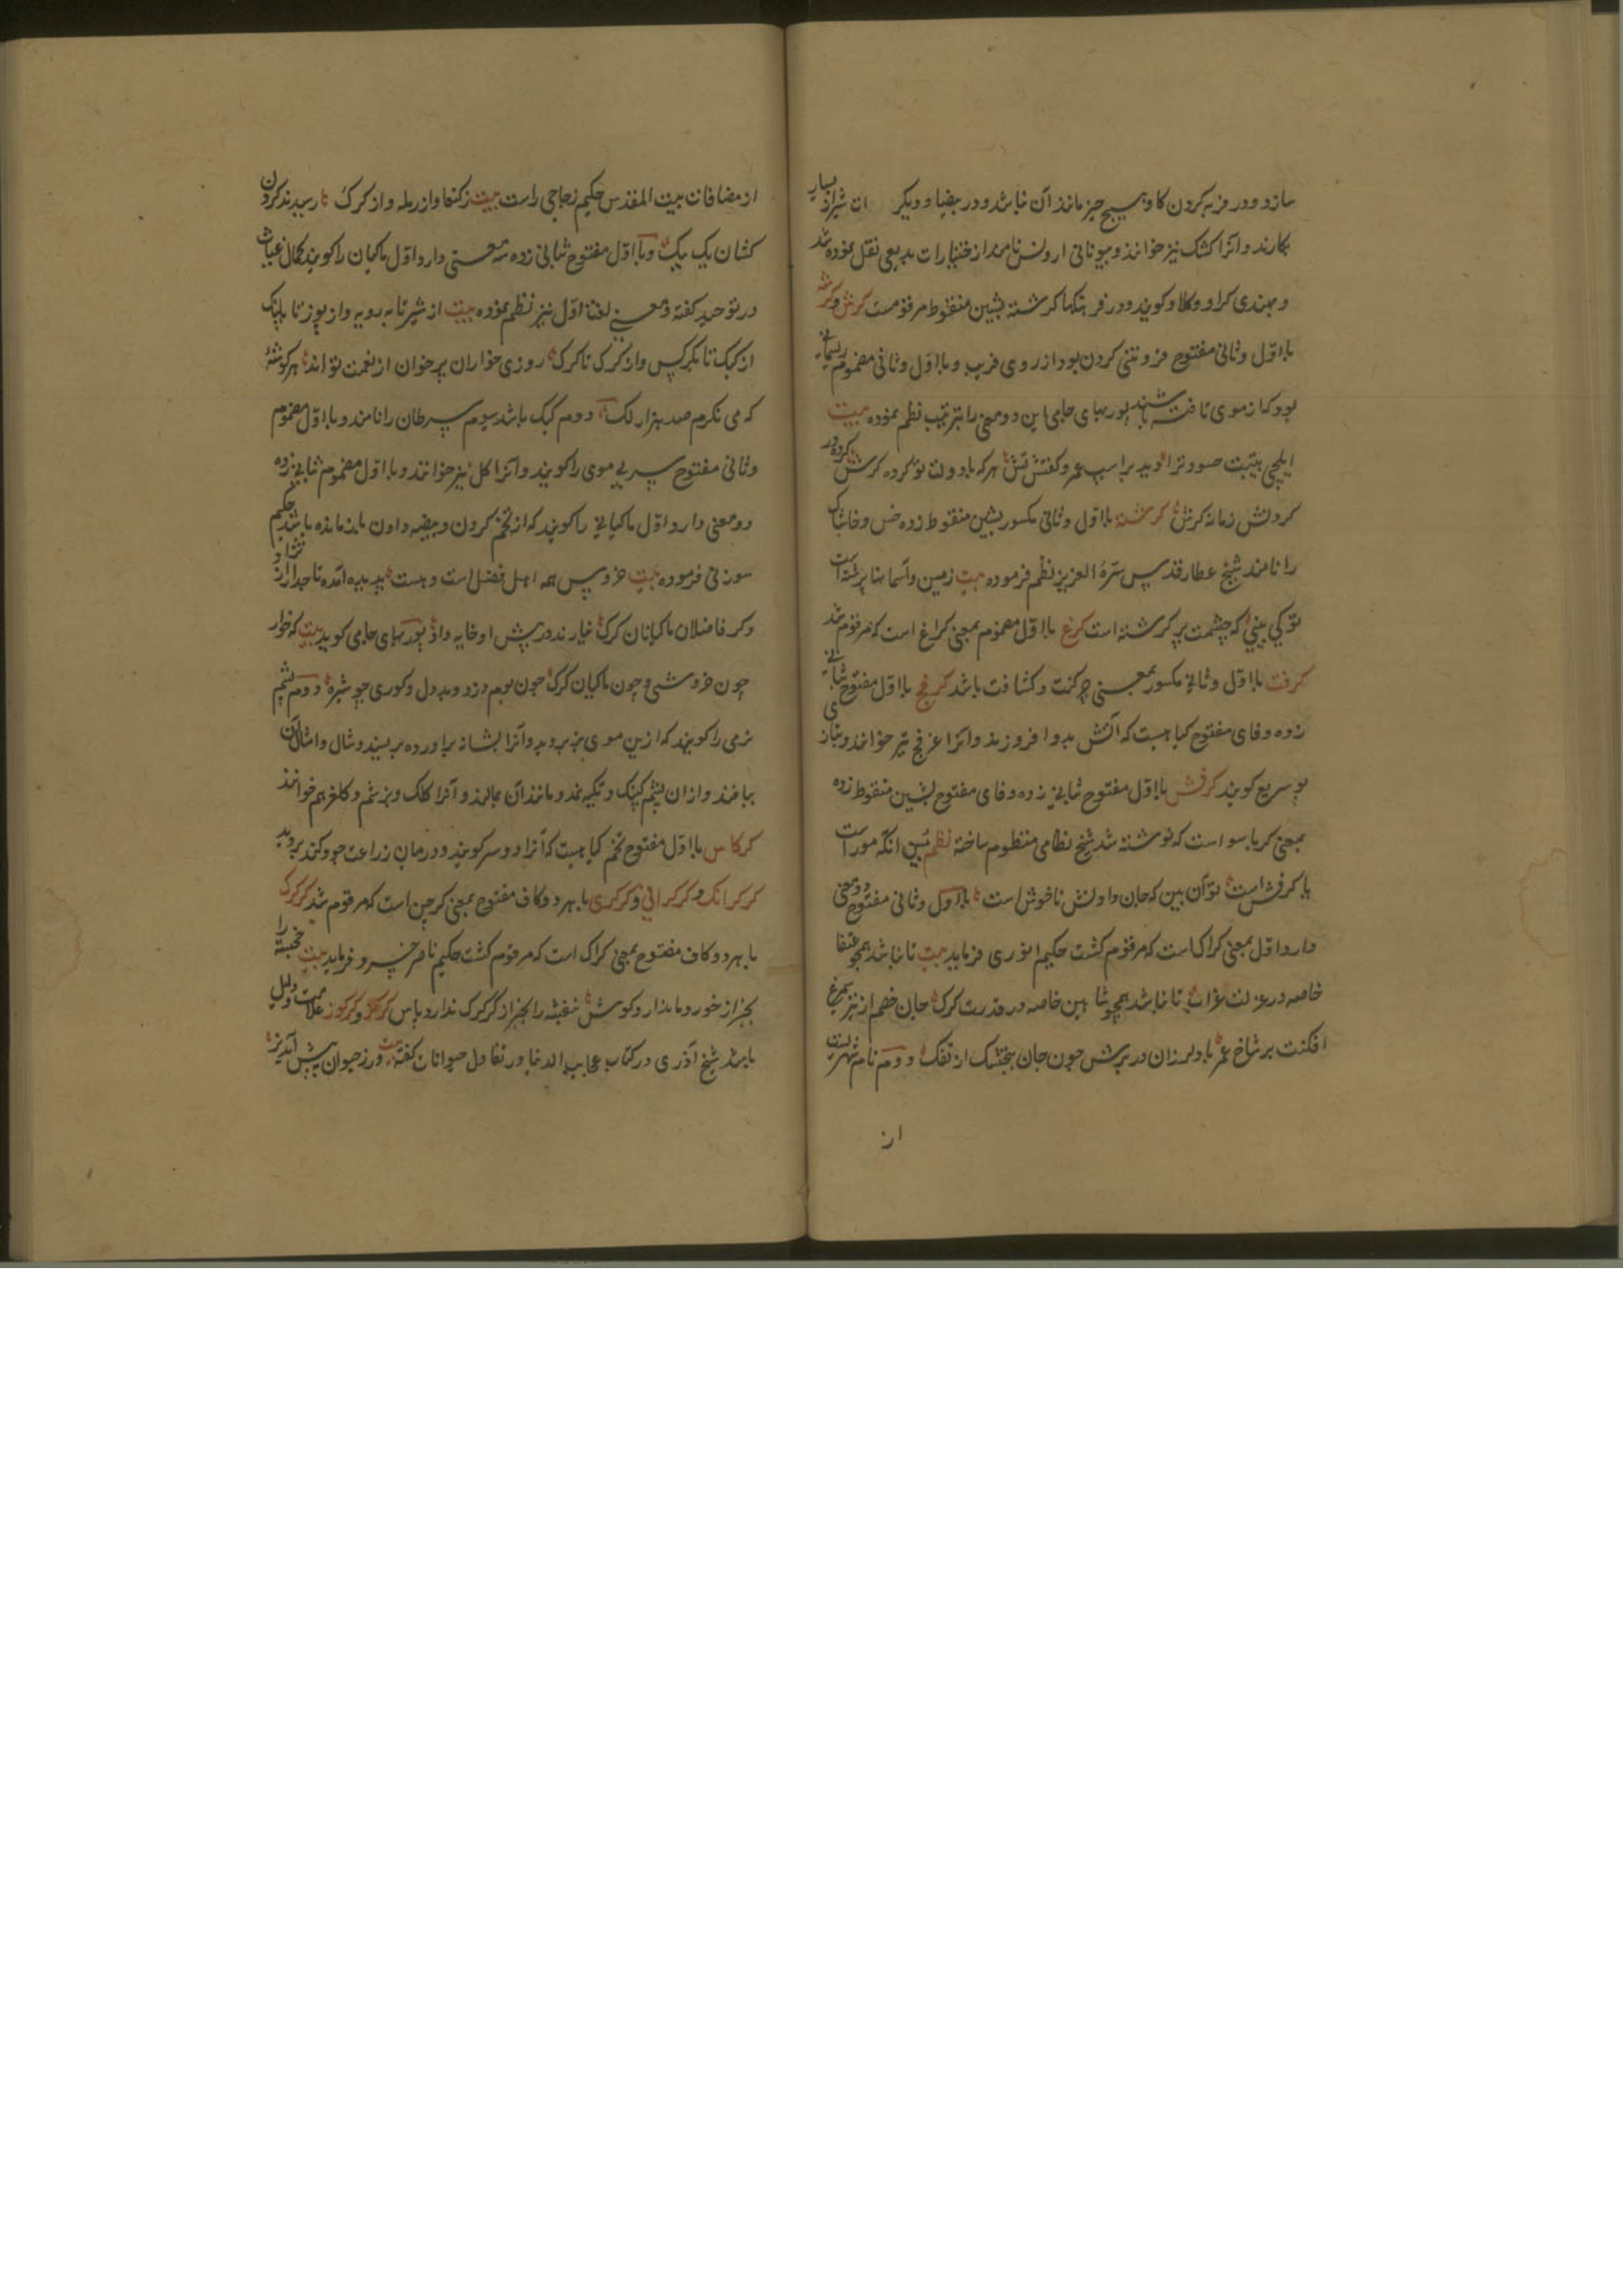 سازد و در فربه کردن کاو هیچ چیز مانند آن نباشد و در بیضا و دیکر شیراز بسیار
بکارند و آنرا کشنک نیز خوانند و بیونانی ارونس نامند از اختیارات بدیعی نقل نموده شد
و بهندی کراو و کلاو کویند و در فرهنکها کرشنه بشین منقوط مرقومست کرش و کرشه
با اول و ثانی مفتوح فروتنی کردن بود از روی فریب و با اول و ثانی مضموم ریسمانی
بود که از موی تافته باشند پوربهای جامی این دو معنی را بترتیب نظم نموده بیت
ایلچی هیبت حسود ترا دید بر اسب عمر و کفتش تش هر که با دولت تو کرده کرش کرده در
کردنش زمانه کرش کرشته با اول و ثانی مکسور بشین منقوط زده خس و خاشاک
را نامند شیخ عطار قدس سره العزیز نظم فرموده بیت زمین و آسمانها پر فرشته است
تو کی بینی که چشمت پر کرشته است کرغ با اول مضموم بمعنی کراغ است که مرقوم شد
کرفت با اول و ثانی مکسور بمعنی چرکنت و کثافت باشد کرفج با اول مفتوح بثانی
زده و فای مفتوح کیاهیست که آتش بدو افروزند و انرا عرفج نیز خوانند و بتازی
بو سریع کویند کرفش با اول مفتوح بثانی زده و فای مفتوح بشین منقوط زده
بمعنی کرباسو است که نوشته شد شیخ نظامی منظوم ساخته نظم مبین انکه مور است
یا کرفش است تو آن بین که جان دادنش ناخوش است با اول و ثانی مفتوح دو معنی
دارد اول بمعنی کراک است که مرقوم کشت حکیم انوری فرماید بیت تا نباشد همچو عنقا
خاصه در عزلت غراب تا نباشد همچو شاهین خاصه در قدرت کرک جان خصم از تیر سیمرغ
افکنت بر شاخ عمر باد لرزان در برش چون جان بنجشک از تفک دوم نام شهریست
از
از مضافات بیت المقدس حکیم زجاجی راست بیت ز کنعا و از رمله و از کرک رسیدند کردن
کشان یک بیک و با اول مفتوح بثانی زده سه معنی دارد اول ماکیان را کویند کمال غیاث
در توحید کفته و معنی لغت اول نیز نظم نموده بیت از شیر تا به روبه و از یوز تا پلنک
از کبک تا بکرکس و از کرک تا کرک روزی خواران بر خوان از نعمت تو اند هر کوشهٔ
که می نکرم صد هزار لک دوم کبک باشد سیوم سرطان را نامند و با اول مضموم
و ثانی مفتوح سر بی موی را کویند و آنرا کل نیز خوانند و با اول مضموم بثانی زده
دو معنی دارد اول ماکیانی را کویند که از تخم کردن و بیضه دادن باز مانده باشد حکیم
سوزنی فرموده بیت خروس همه اهل فضل است و هست پدید آمده تاجدار از نژاد
و کر فاضلان ماکیانان کرک نیارند در پیش او خایه داد پوربهای جامی کوید بیت که خوار
چون خروسی و چون ماکیان کرک چون بوم دزد و بددل و کوری چو شبپره دوم پشم
نرمی را کویند که از بن موی بز بروید و آنرا بشانه براورده بریسند و شال و امثال آن
ببافند و از ان پشم کپنک و تکیه نمد و مانند آن بمالند و آنرا کلک و بزشم و کلغر هم خوانند
کرکاس با اول مفتوح تخم کیاهیست که آنرا دوسر کویند و درمیان زراعت جو و کندم روید
کرکرانک و کرکرانی و کرکری با هر دو کاف مفتوح بمعنی کرجن است که مرقوم شد کرکرک
با هر دو کاف مفتوح بمعنی کراک است که مرقوم کشت حکیم ناصر خسرو فرماید بیت خجسته را
بجز از خورد ما ندارد کوش بنفشه را بجز از کرکرک ندارد پاس کرکز و کرکوز علامت و دلیل
باشد شیخ آذری در کتاب عجایب الدنیا در تفاول حیوانات کفته بیت ورز حیوان به پیش آید نیز